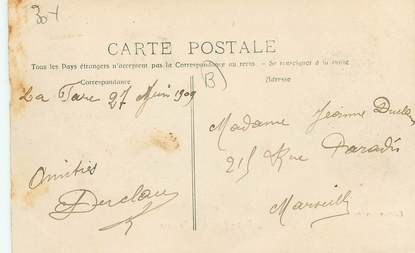 CARTE POSTALE
Tous les Pays étrangers n'acceptent pas la Correspondance au recto - Se renseigner à la Poste
Correspondance
B
Adresse
La 27 1909
Madame Jeanne
215 Rue Paradis
Marseille
Amitiés